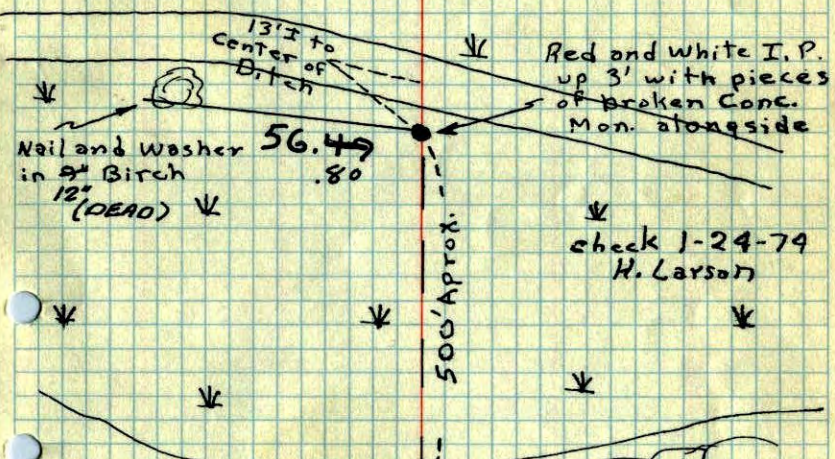 13'± to
Center of
Ditch
Red and White I.P.
up 3' with pieces
of broken Conc.
Mon. alongside
Nail and Washer
in 9" Birch
12"
(DEAD)
56.47
.80
500' Aprox.
check 1-24-74
H. Larson